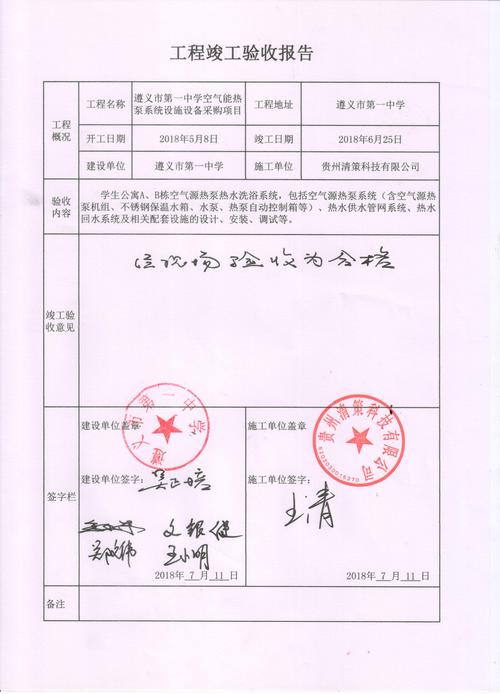 工程竣工验收报告
工程概况
工程名称
遵义市第一中学空气能热泵系统设施设备采购项目
工程地址
遵义市第一中学
开工日期
2018年5月8日
竣工日期
2018年6月25日
建设单位
遵义市第一中学
施工单位
贵州清策科技有限公司
验收内容
学生公寓A、B栋空气源热泵热水洗浴系统,包括空气源热泵系统(含空气源热
泵机组、不锈钢保温水箱、水泵、热泵自动控制箱等)、热水供水管网系统、热水
回水系统及相关配套设施的设计、安装、调试等。
竣工验收意见
经现场验收为合格
签字栏
建设单位盖章
遵义市第一中学
建设单位签字:
文银健
王小明
2018年 7 月 11 日
施工单位盖章
贵州清策科技有限公司
施工单位签字:
王清
2018年 7 月 11 日
备注